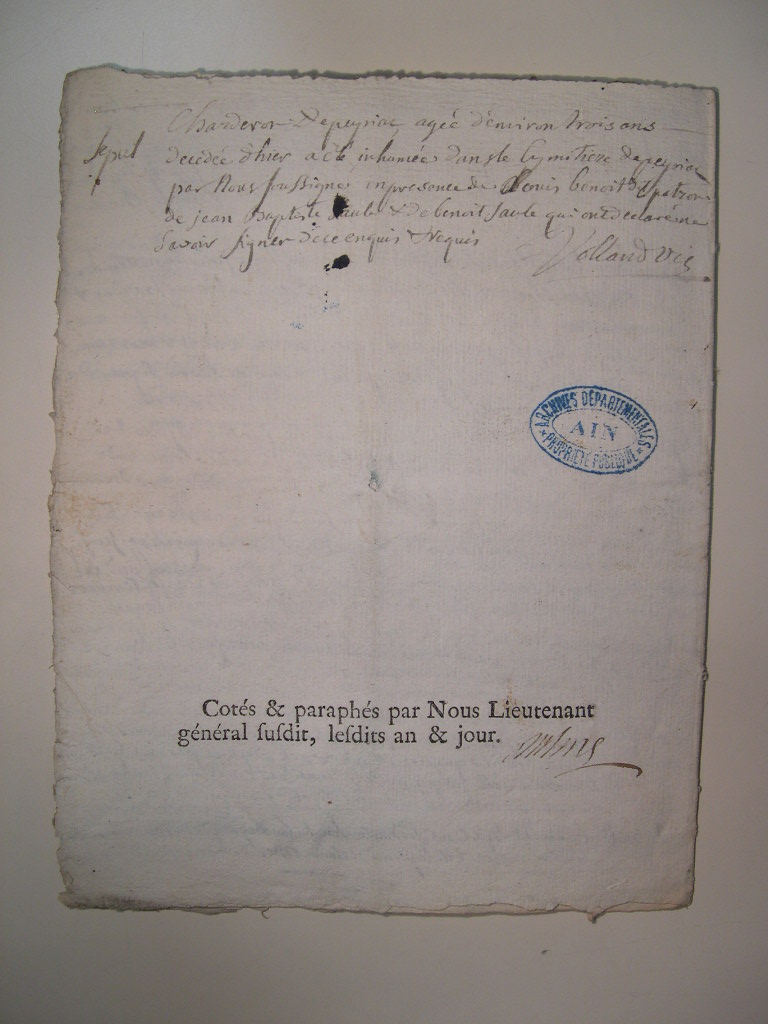 Sepul
Charderon Depeyriac agée d'environ trois ans
decedée d'hier a eté inhumée dans le cymitiere depeyriac
par Nous soussigné en presence de Denis benoit
de jean Baptiste Saule & de benoit Saule qui ont declaré ne
Savoir signer de ce enquis & requis
Volland vic
ARCHIVES DÉPARTEMENTALES
AIN
★ PROPRIÉTÉ PUBLIQUE ★
Cotés & paraphés par Nous Lieutenant
général susdit, lesdits an & jour.